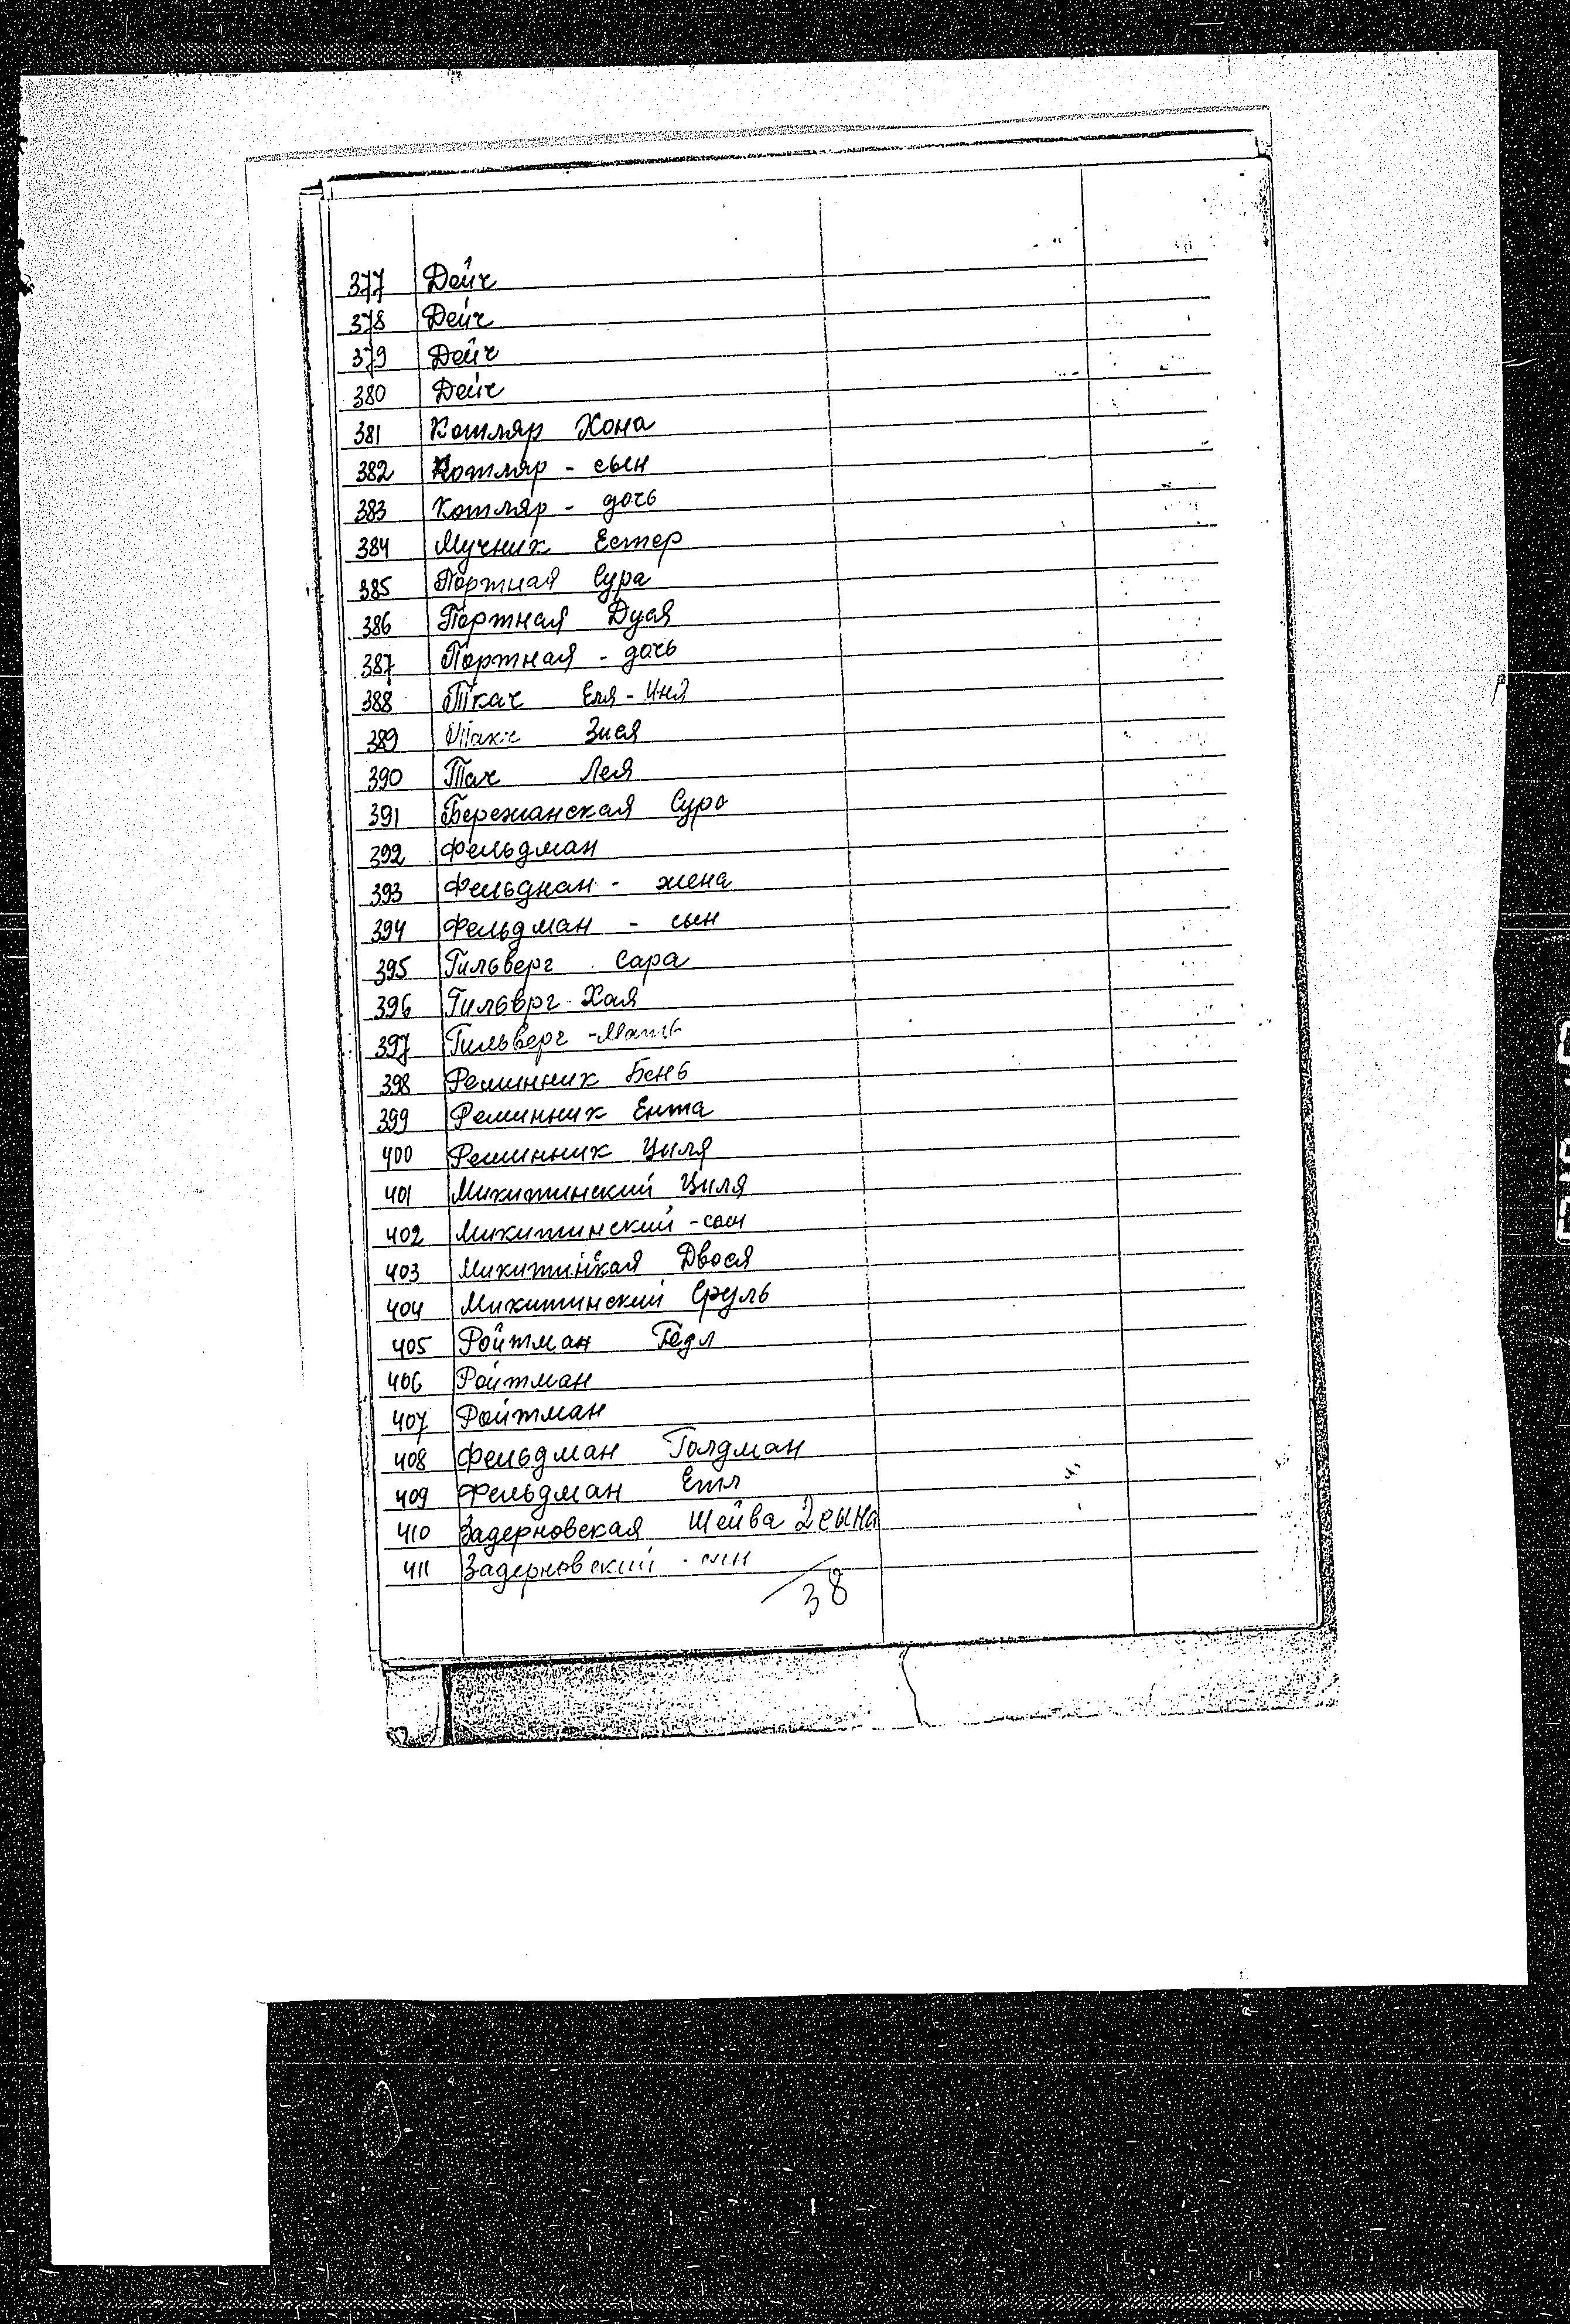 377 Дейч
378 Дейч
379 Дейч
380 Дейч
381 Котляр Хона
382 Котляр - сын
383 Котляр - дочь
384 Мучник Естер
385 Портная Сура
386 Портная Дуся
387 Портная - дочь
388 Ткач Еля-Иня
389 Зися
390 Тач Лея
391 Бережанская Сура
392 Фельдман
393 Фельднан - жена
394 Фельдман - сын
395 Гильверг Сара
396 Гильврг Хая
397 Гильверг - мать
398 Реминник Бень
399 Реминник Ента
400 Реминник Циля
401 Микитинский Циля
402 Микитинский - сын
403 Двося
404 Микитинский Сруль
405 Ройтман Гедл
406 Ройтман
407 Ройтман
408 Фельдман Голдман
409 Фельдман Етл
410 Задерновская Шейва 2 сына
411 Задерновский - сын
38